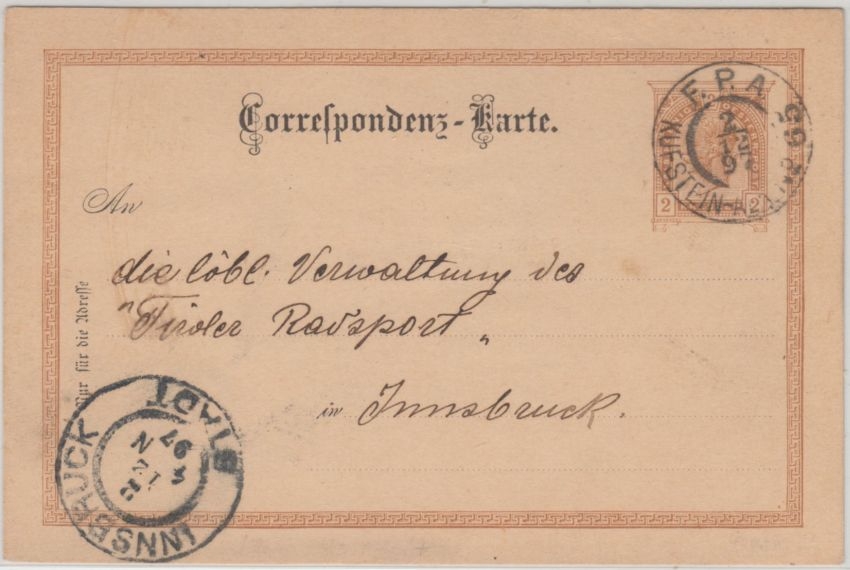 Correspondenz-Karte.
F.P.A. 66
KUFSTEIN-
2 2
An
die löbl. Verwaltung des
"Tiroler Radsport"
in Innsbruck.
Nur für die Adresse
INNSBRUCK STADT
97